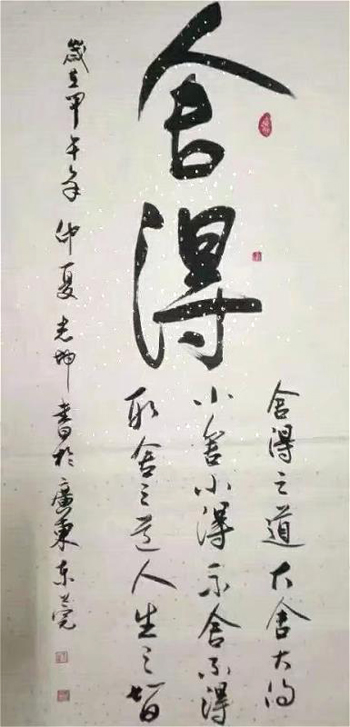 舍得
舍得之道大舍大得
小舍小得不舍不得
取舍之道人生之智
歲在甲午年仲夏光坤書於廣東東莞